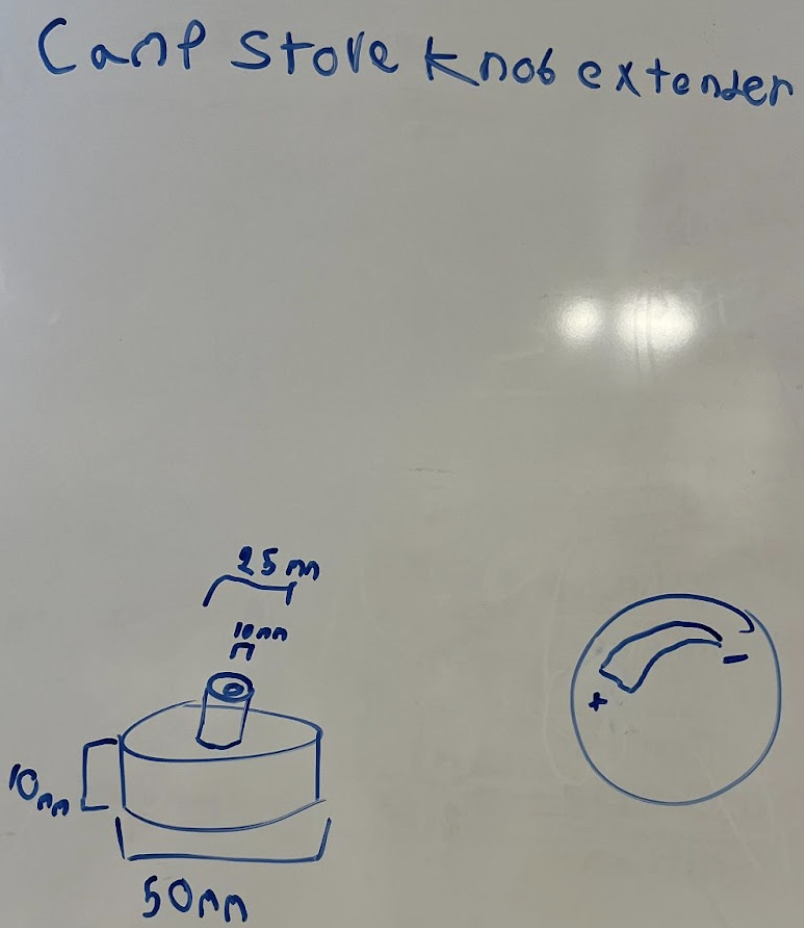 Camp Stove knob extender
25mm
10mm
-
+
10mm
50mm